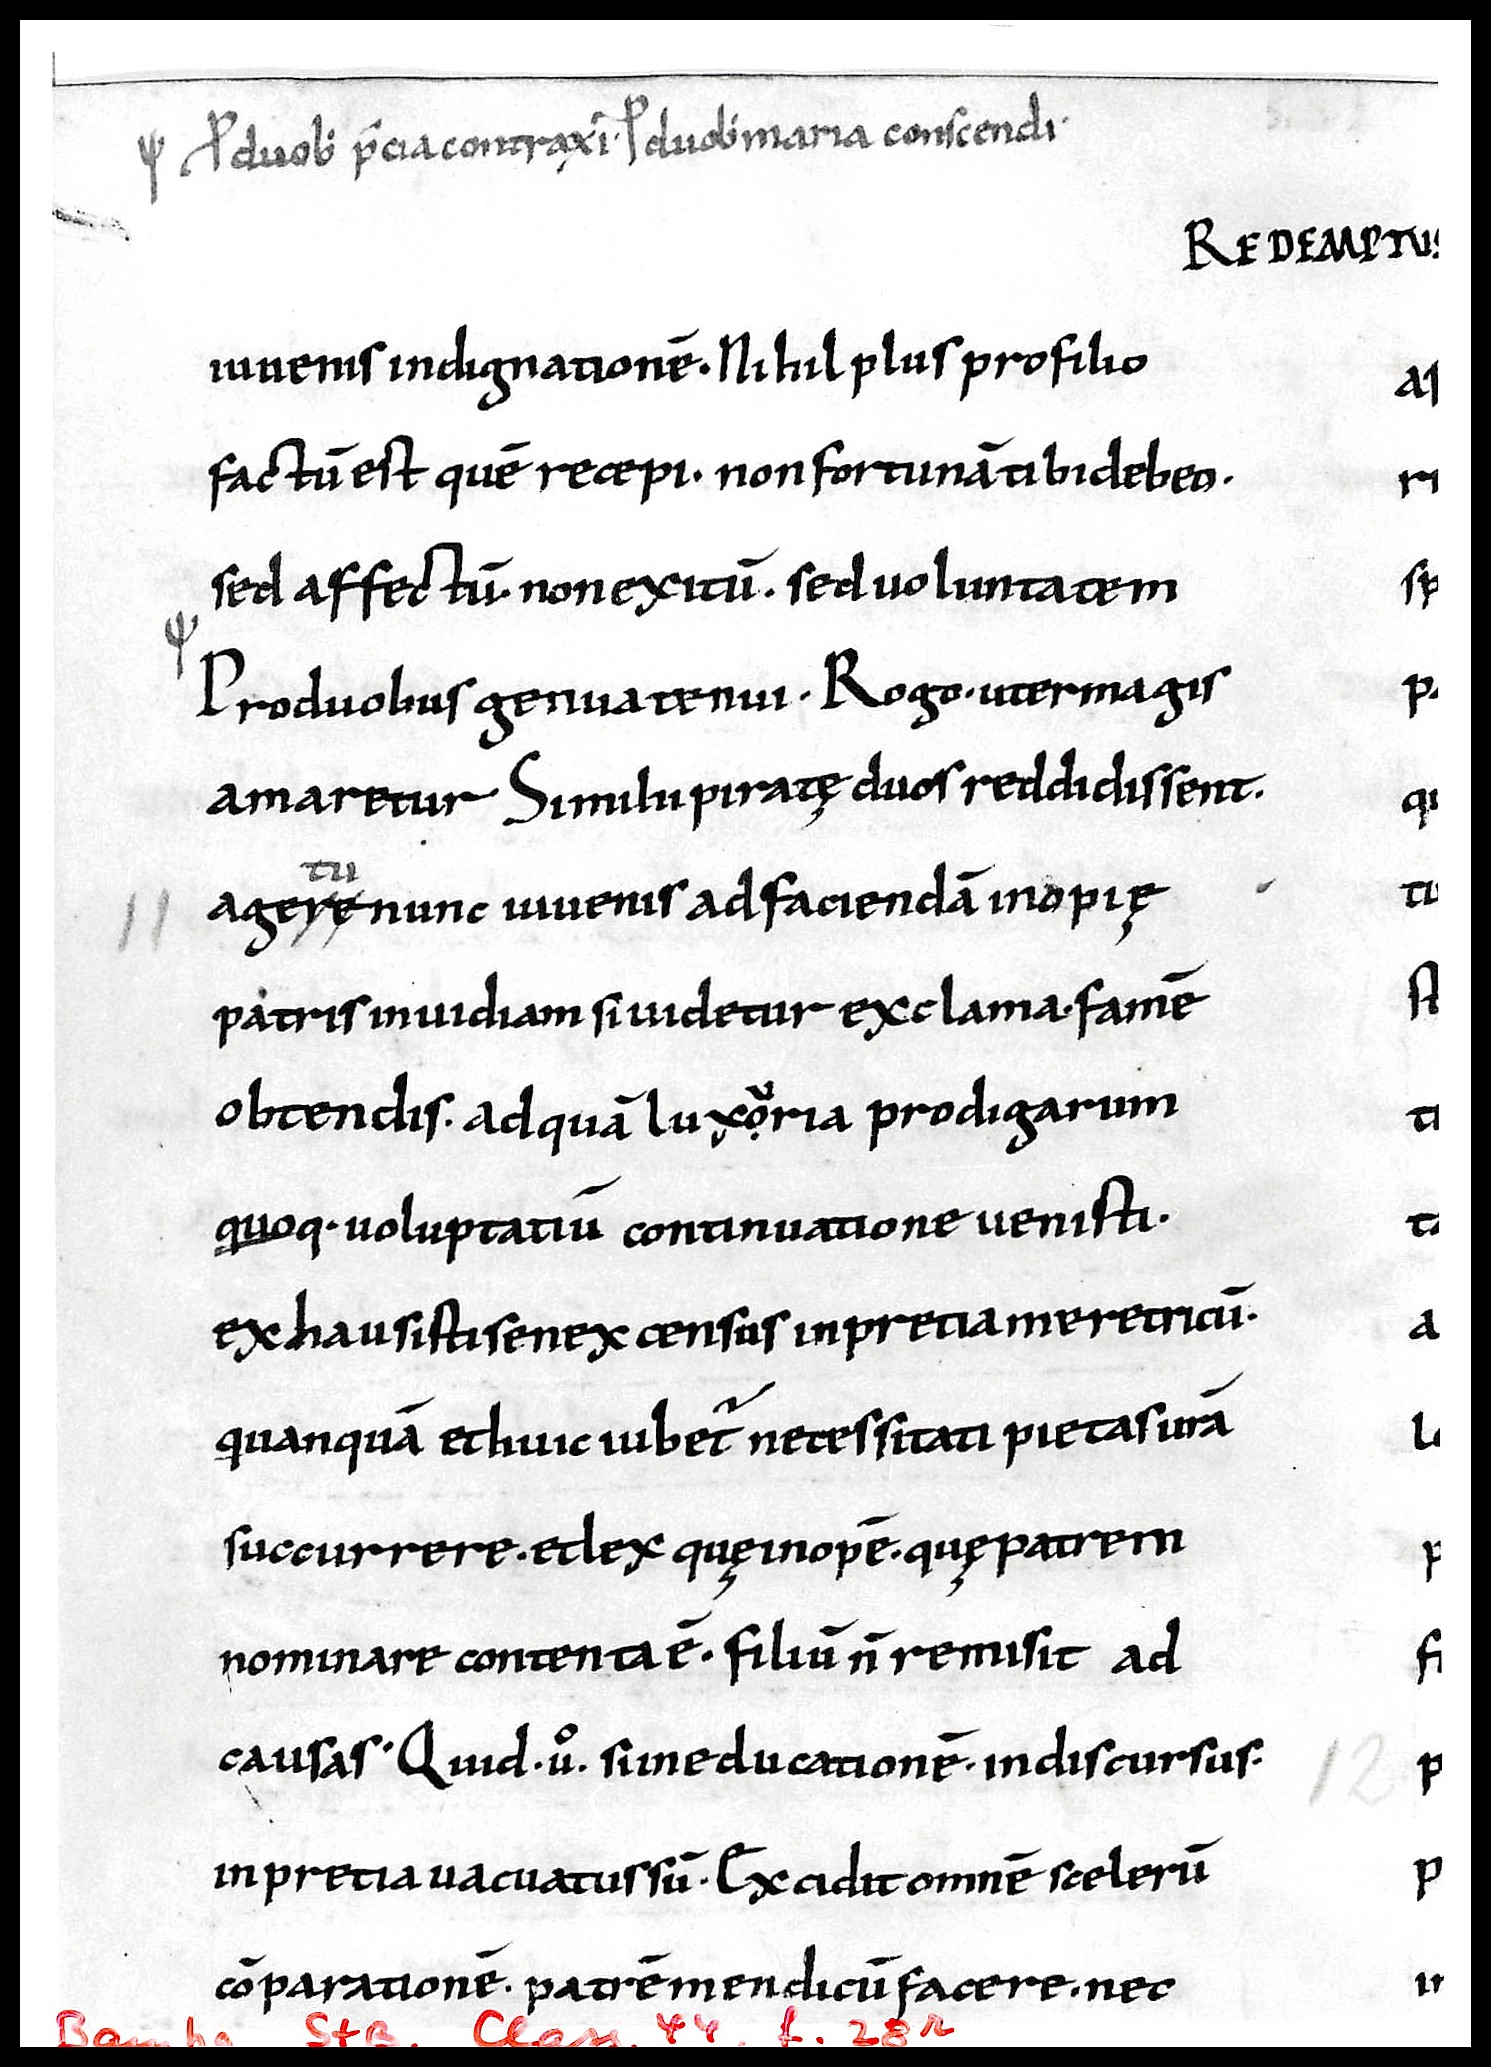 ψ P duob p̄cia contraxi· P duob maria conscendi·
REDEMPTUS
iuuenis indignationē· Nihil plus pro filio
factū est quē recepi· non fortunā tibi debeo·
sed affectū· non exitū· sed uoluntatem
ψ
Pro duobus genua tenui· Rogo· uter magis
amaretur Si mihi piratę duos reddidissent·
tu
11 agere nunc iuuenis ad faciendā inopię
patris inuidiam si uidetur exclama· famē
obtendis· ad quā luxoria prodigarum
quoq· uoluptatiū continuatione uenisti·
exhausisti senex census in pretia meretricū·
quanquā et huic iubet necessitati pietas urā
succurrere· et lex quę inopē· quę patrem
nominare contenta ē· filiū n̄ remisit ad
causas· Quid· uͦ· si in educationē· in discursus· 12
in pretia uacuatus sū· Excidit omnē scelerū
cōparationē· patrē mendicū facere· nec
Bambg StB. Class. 44, f. 28r